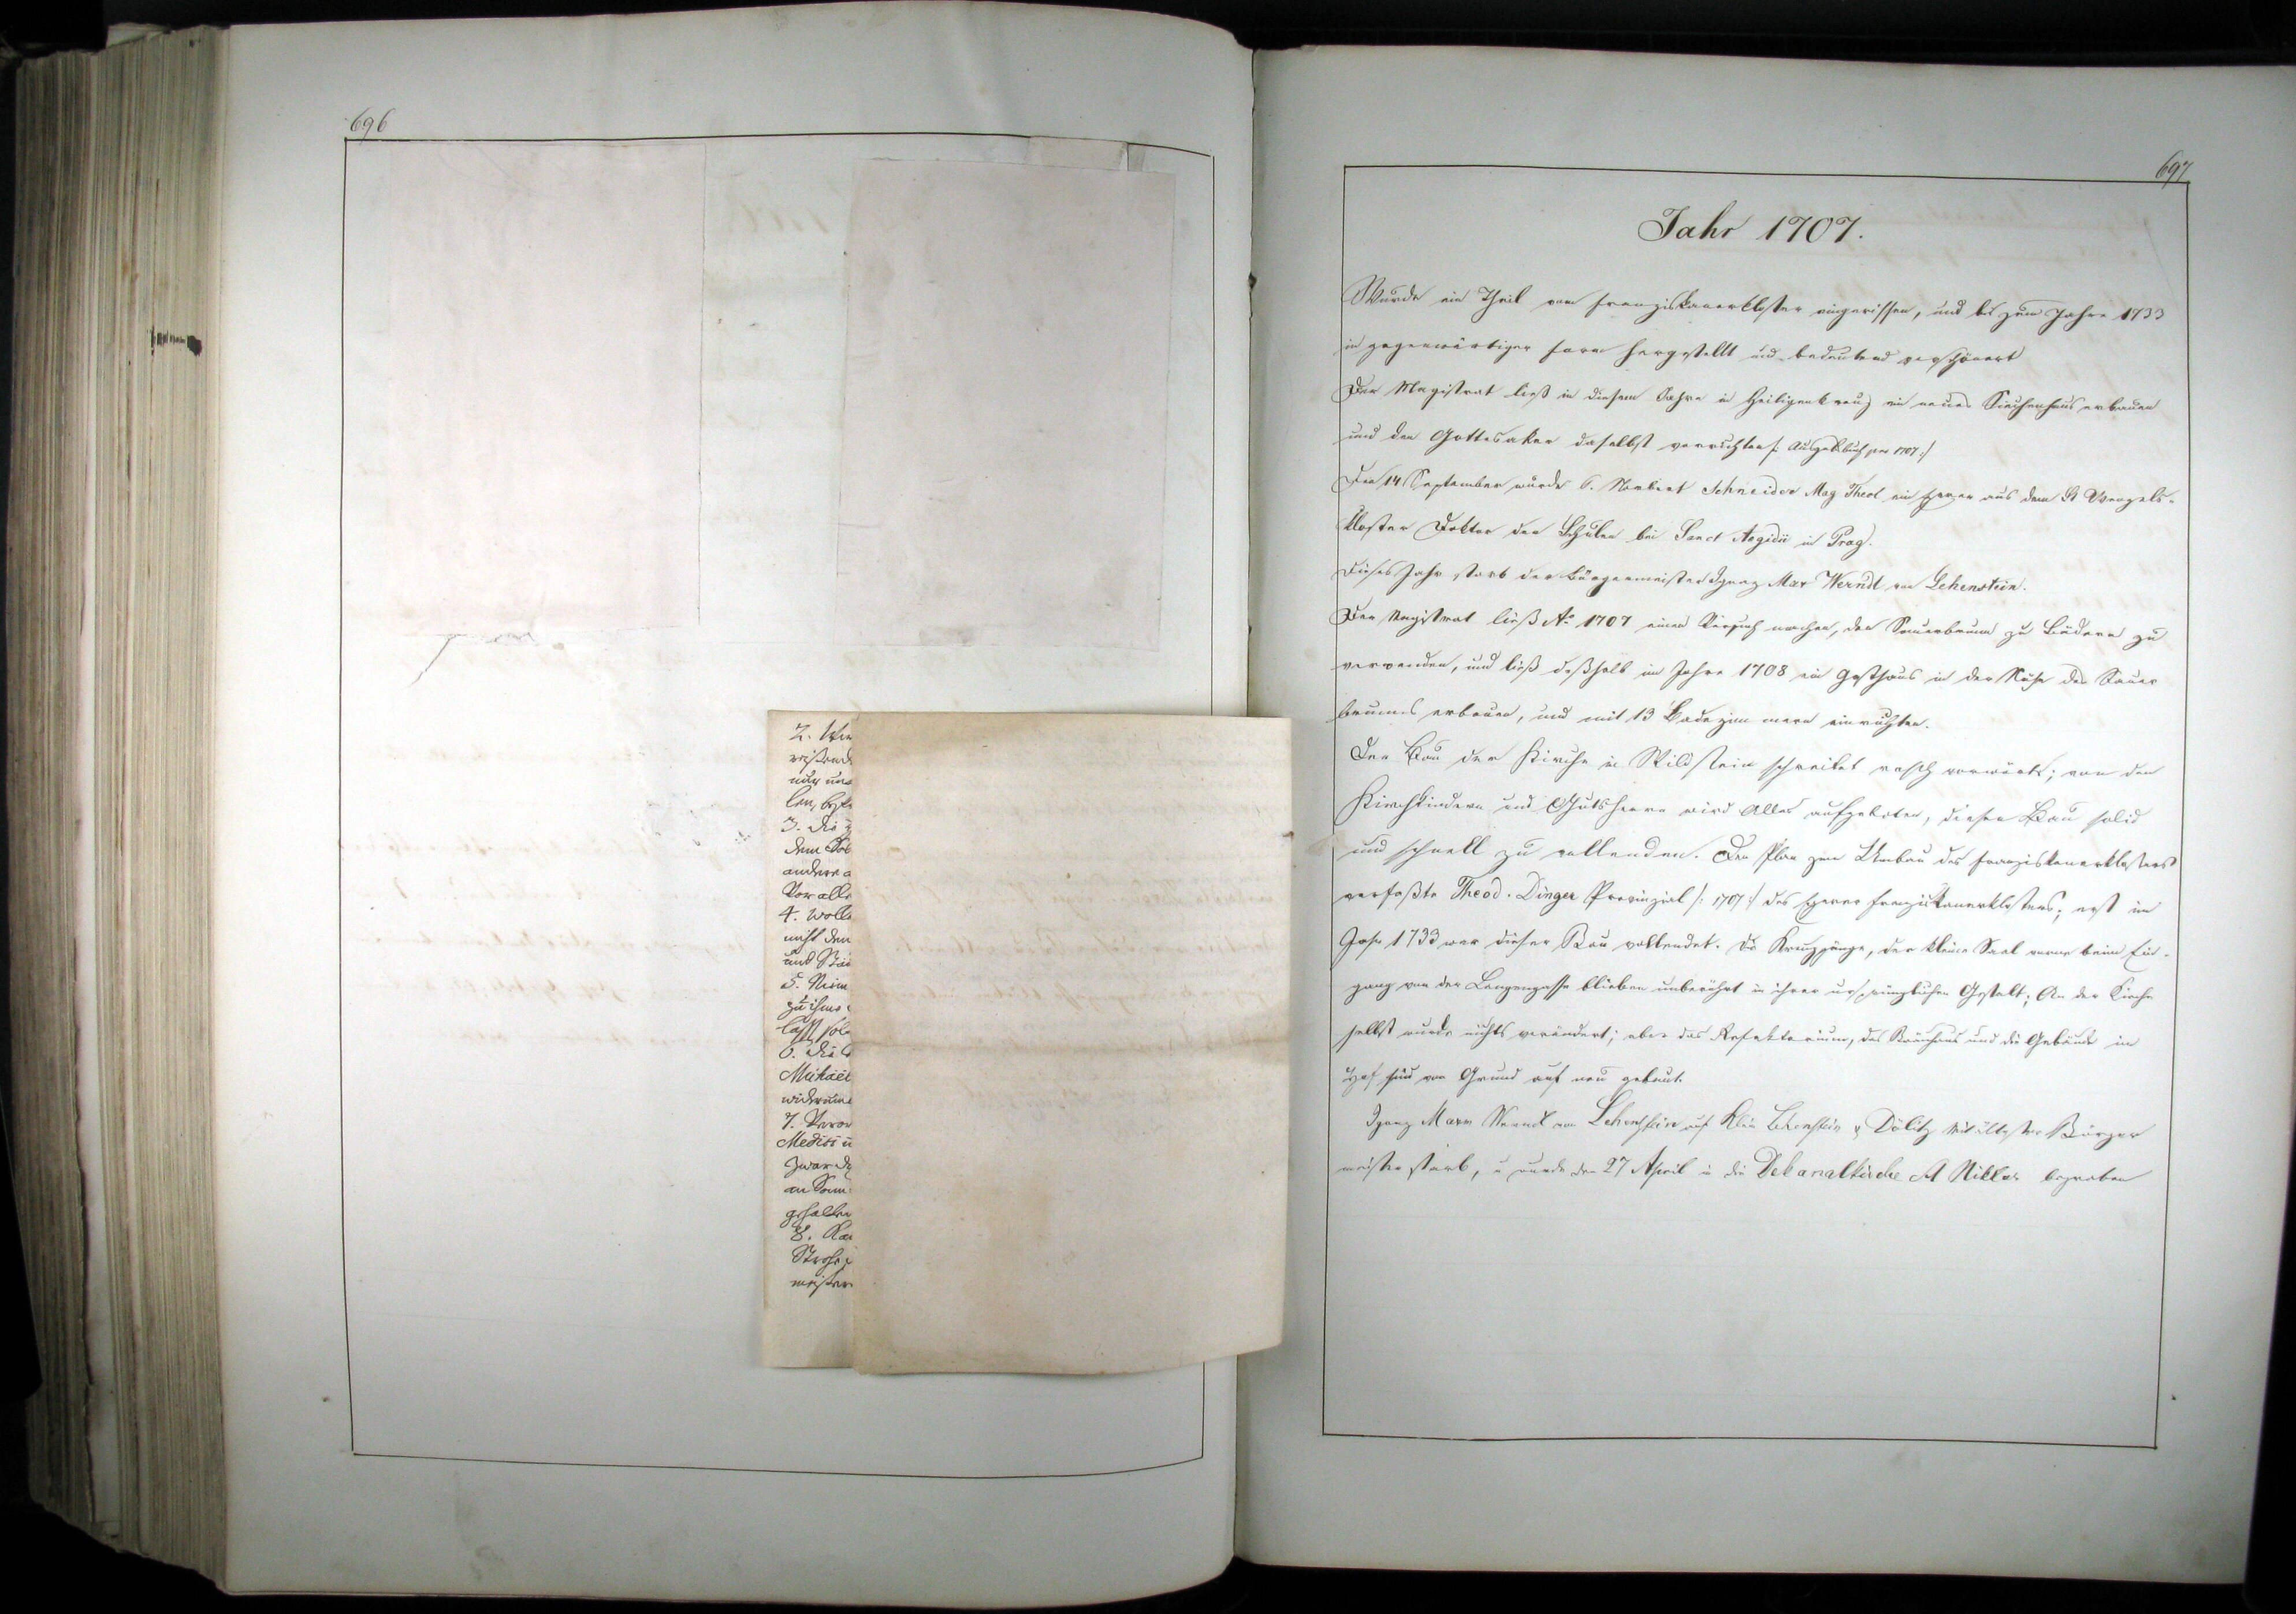 696
2. Wie
nur uns
3. Die
dem
andere
Vor alle
4. Wolle
nicht den
und
5.
zu ihme
6. Die
Michaël
widerum
7.
Medici
zwar
an Sonn
gehalten
8.
meister
697
Jahr 1707.
Wurde ein Theil vom Franziskanerkloster eingerissen, und bis zum Jahre 1733
in gegenwärtiger Form hergestellt und bedeutend verschönert
Der Magistrat ließ in diesem Jahre in Heiligenkreuz ein neues Siechenhaus erbauen
und den Gottesaker daselbst verrichten /: Ausgabsbuch pro 1707 :/
Den 14 September wurde P. Norbert Schneider Mag Theol ein Egerer aus dem St Wenzels-
kloster Doktor der Schulen bei Sanct Aegidii in Prag.
Dieses Jahr starb der Bürgermeister Ignaz Max Werndl von Lehenstein.
Der Magistrat ließ Ao 1707 einen Versuch machen, den Sauerbrunn zu Bädern zu
verwenden, und ließ deßhalb im Jahre 1708 ein Gasthaus in der Nähe des Sauer
brunns erbauen, und mit 13 Badezimmern einrichten.
Der Bau der Kirche in Wildstein schreitet rasch vorwärts; von den
Kirchkindern und Gutsherrn wird Alles aufgeboten, diesen Bau solid
und schnell zu vollenden. Den Plan zum Umbau des Franziskanerklosters
verfaßte Theod. Dinger Provinzial /: 1707 :/ des Egerer Franziskanerklosters; erst im
Jahre 1733 war dieser Bau vollendet. Die Kreuzgänge, der kleine Saal vorne beim Ein-
gang von der Langengasse blieben unberührt in ihrer ursprünglichen Gestalt; An der Kirche
selbst wurde nichts verändert; aber das Refektorium, das Bräuhaus und die Gebäude im
Hof sind von Grund auf neu gebaut.
Ignaz Maxm Werndl von Lehenstein auf Klein Lehenstein & Dölitz Bürger
meister starb, u wurde den 27 April in die Dekanalkirche St Niklas begraben